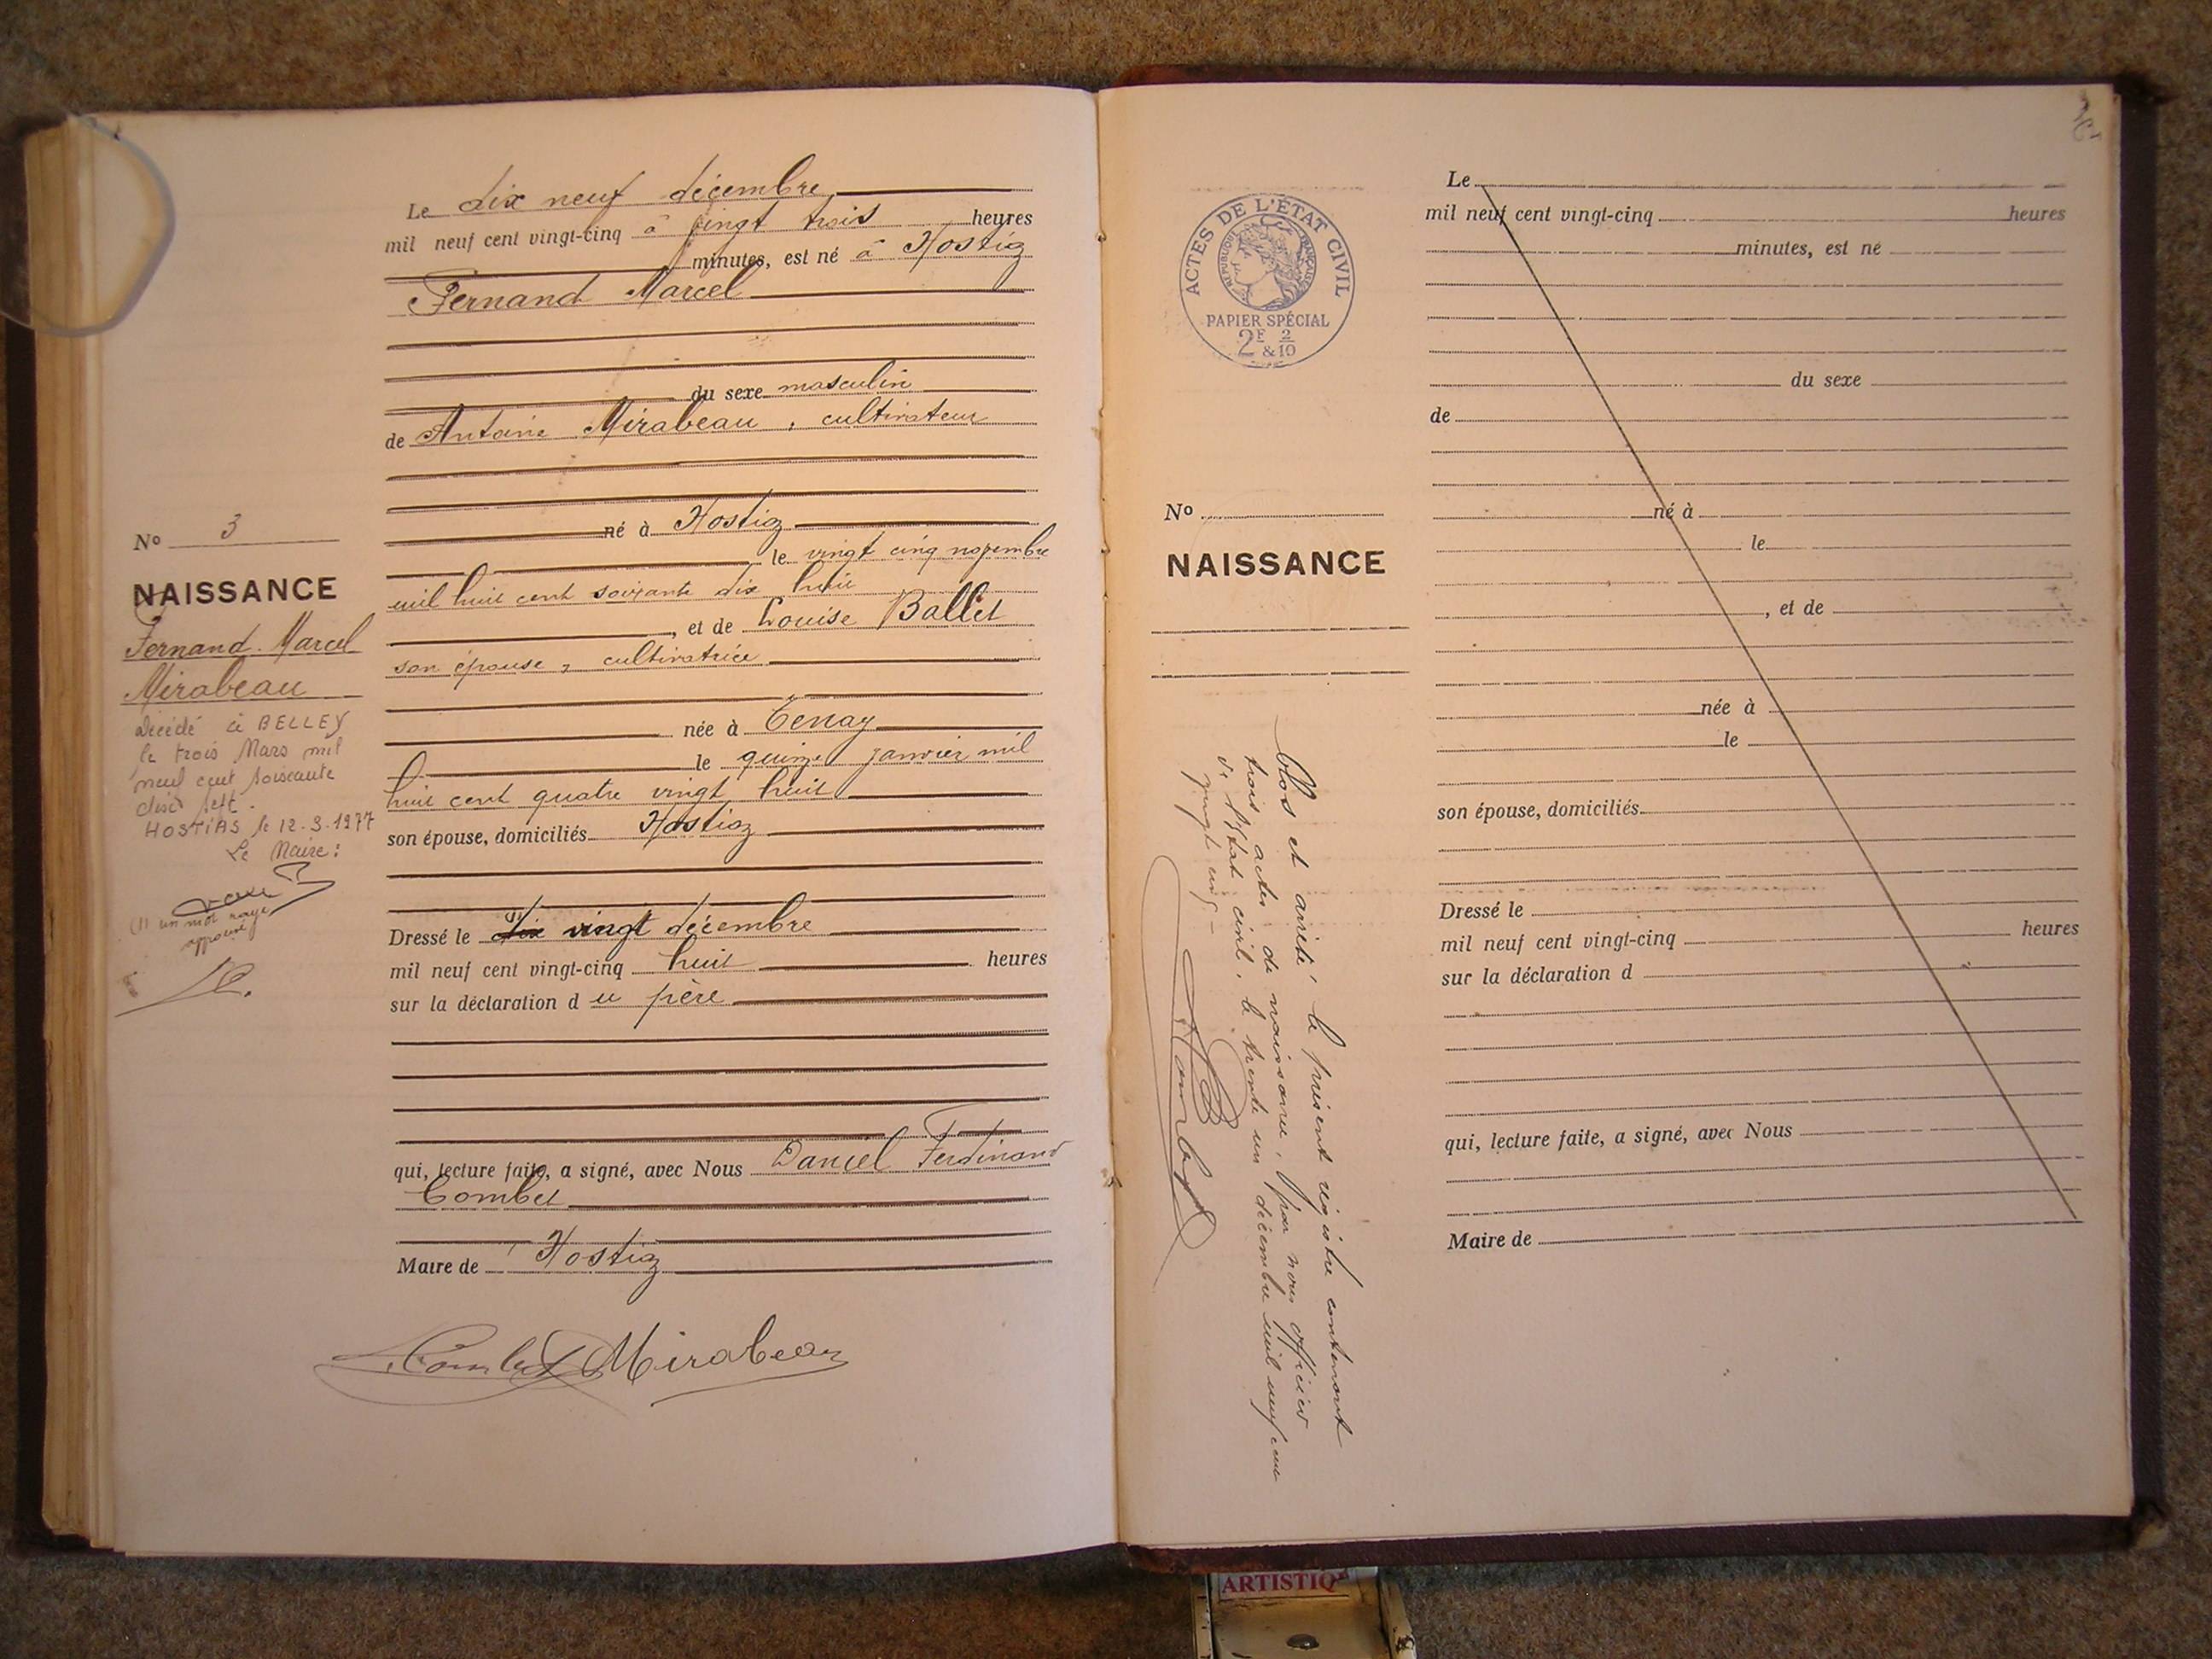 Le dix neuf décembre
mil neuf cent vingt-cinq à vingt trois heures
minutes, est né à Hostiaz
Fernand Marcel
du sexe masculin
de Antoine Mirabeau, cultivateur
né à Hostiaz
le vingt cinq novembre
mil huit cent soixante dix huit
, et de Louise Ballet
son épouse, cultivatrice
née à Tenay
le quinze janvier mil
huit cent quatre vingt huit
son épouse, domiciliés Hostiaz
Dressé le dix vingt décembre
mil neuf cent vingt-cinq huit heures
sur la déclaration du père
qui, lecture faite, a signé, avec Nous Daniel Ferdinand
Combet
Maire de Hostiaz
Combet Mirabeau
No 3
NAISSANCE
Fernand Marcel
Mirabeau
décédé à BELLEY
le trois Mars mil
neuf cent soixante
dix sept.
HOSTIAS le 12-3-1977
Le Maire:
(1) un mot rayé
approuvé
ACTES DE L'ÉTAT CIVIL
RÉPUBLIQUE FRANÇAISE
PAPIER SPÉCIAL
2F 2
&10
No
NAISSANCE
Clos et arrêté le présent registre contenant
trois actes de naissance, par nous officier
de l'Etat civil, le trente un décembre mil neuf cent
vingt cinq
Combet
Le
mil neuf cent vingt-cinq heures
minutes, est né
du sexe
de
né à
le
, et de
née à
le
son épouse, domiciliés
Dressé le
mil neuf cent vingt-cinq heures
sur la déclaration d
qui, lecture faite, a signé, avec Nous
Maire de
ARTISTIQ